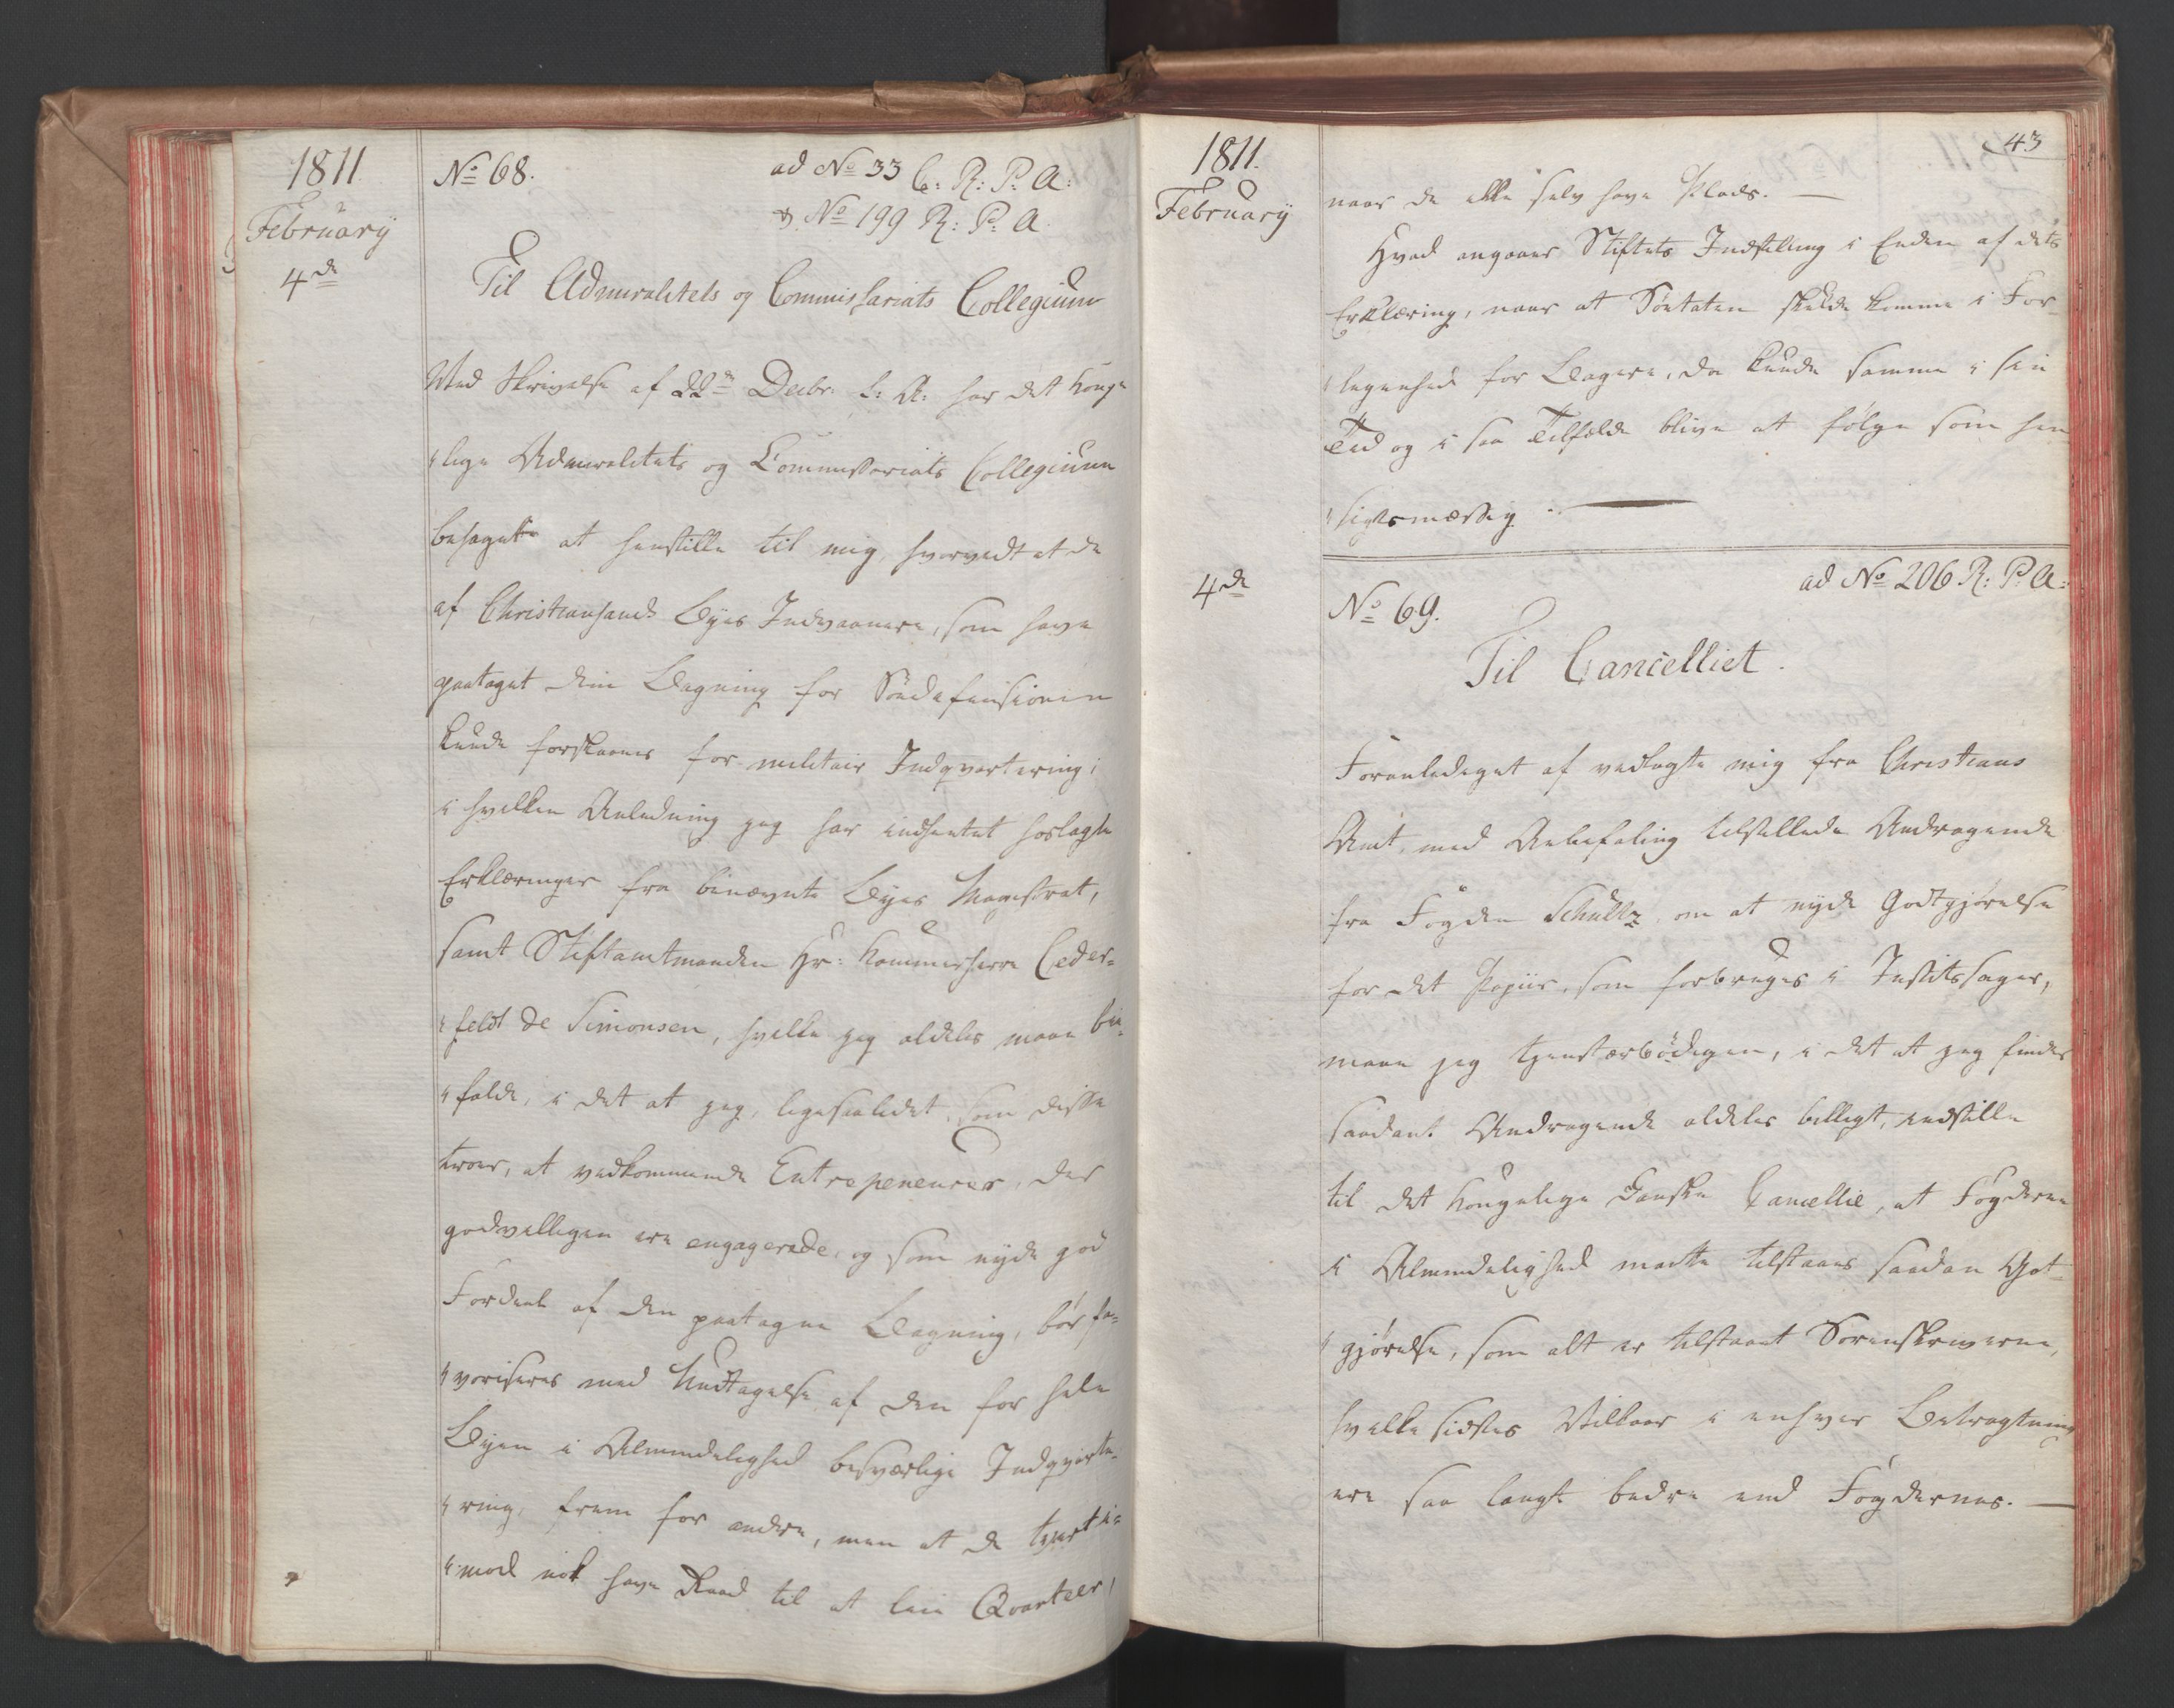 1811
February
4de
No 68.
ad No 33 C: R: P: A:
& No 199 R: P: A.
Til Admiralitets og Commissariats Collegium
Ved Skrivelse af 22de Decbr: f: A: har det Konge-
"lige Admiralitets og Commissariats Collegium
behaget at henstille til mig, hvorvidt at de
af Christiansands Byes Indvaanere, som have
paataget dem Bagning for Södefensionen
kunde forskaanes for militair Indqvartering;
i hvilken Anledning jeg har indhentet hoslagte
Erklæringer fra benævnte Byes Magistrat,
samt Stiftamtmanden Hr: Kammerherre Ceder-
"feldt de Simonsen, hvilke jeg aldeles maae bi-
"falde, i det at jeg, ligesaalidet, som disse
troer, at vedkommende Entrepeneurer, der
godvilligen ere engagerede, og som nyde god
Fordeel af den paatagne Bagning, bör fa-
"voriseres med Undtagelse af den for hele
Byen i Almindelighed besværlige Indqvarte-
"ring, frem for andre, men at de tvert i-
"mod nok have Raad til at leie Qvarteer,
1811.
February
43
naar de ikke selv have Plads. —
Hvad angaaer Stiftets Indstilling i Enden af dets
Erklæring, naar at Söetaten skulde komme i For-
"legenhed for Bagere, da kunde samme i sin
Tid og i saa Tilfælde blive at fölge som hen
"sigtsmæssig. —
4de
No 69.
ad No 206 R: P: A:
Til Cancelliet.
Foranlediget af vedlagte mig fra Christians
Amt, med Anbefaling tilstillede Andragende
fra Fogden Schultz, om at nyde Godtgjörelse
for det Papiir, som forbruges i Justitssager,
maae jeg tjenstærbödigen, i det at jeg finder
saadant Andragende aldeles billigt, indstille
til det Kongelige Danske Cancellie, at Fogderne
i Almindelighed maatte tilstaaes saadan Got-
"gjörelse, som alt er tilstaaet Sorenskriverne,
hvilke sidstes Vilkaar i enhver Betragtning
ere saa langt bedre end Fogdernes. —